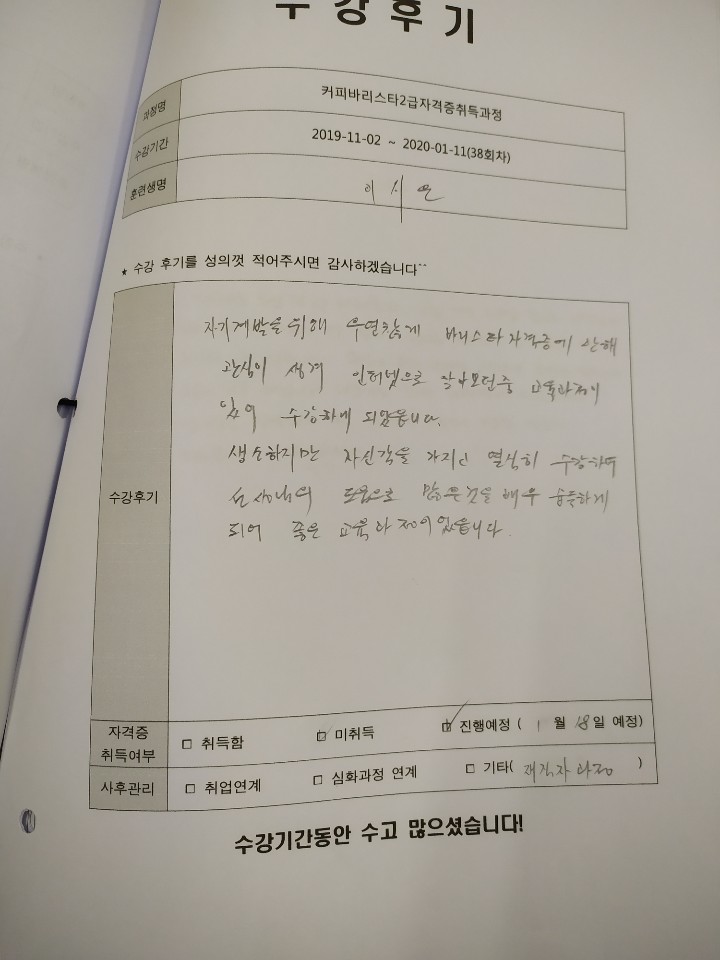 수강후기
과정명 커피바리스타2급자격증취득과정
수강기간 2019-11-02 ~ 2020-01-11(38회차)
훈련생명 이
★ 수강 후기를 성의껏 적어주시면 감사하겠습니다^^
수강후기
자기계발을 위해 우연찮게 바리스타 자격증에 관해
관심이 생겨 인터넷으로 알아보던중 교육과정이
있어 수강하게 되었습니다.
생소하지만 자신감을 가지고 열심히 수강하며
선생님의 도움으로 많은것을 배우 습득하게
되어 좋은 교육과정이었습니다.
자격증
취득여부 □ 취득함 □ 미취득 ☑ 진행예정 ( 1 월 18일 예정)
사후관리 □ 취업연계 □ 심화과정 연계 □ 기타( 재직자 과정 )
수강기간동안 수고 많으셨습니다!